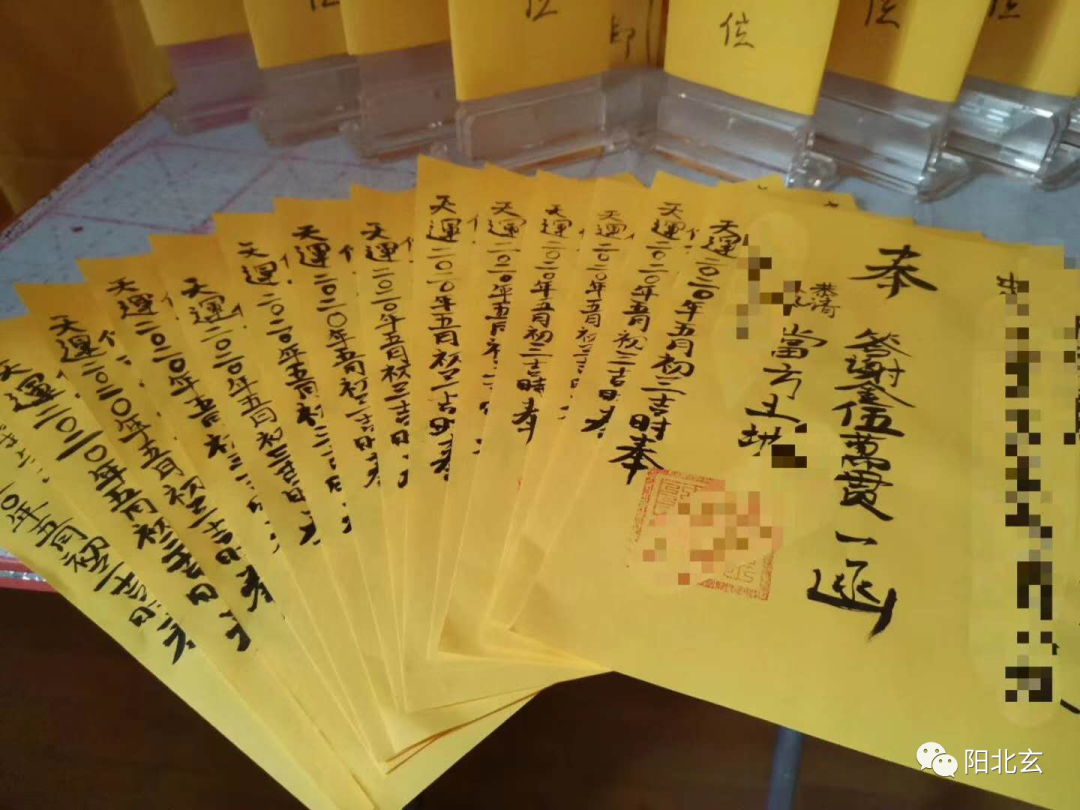 位
位
位
位
印
位
位
位
奉
答謝金伍萬貫一函
恭請
當方土地
天運二〇二〇年五月初二吉時奉
天運二〇二〇年五月初二吉時
天運二〇二〇年五月初二吉時
天運二〇二〇年五月初二吉時奉
天運二〇二〇年五月初二
天運二〇二〇年五月初二吉時奉
天運二〇二〇年五月初二吉時
天運二〇二〇年五月初二吉時
天運二〇二〇年五月初二吉時奉
天運二〇二〇年五月初二
天運二〇二〇年五月初二吉時
天運二〇二〇年五月初二吉時
天運
年五月初二吉時
阳北玄